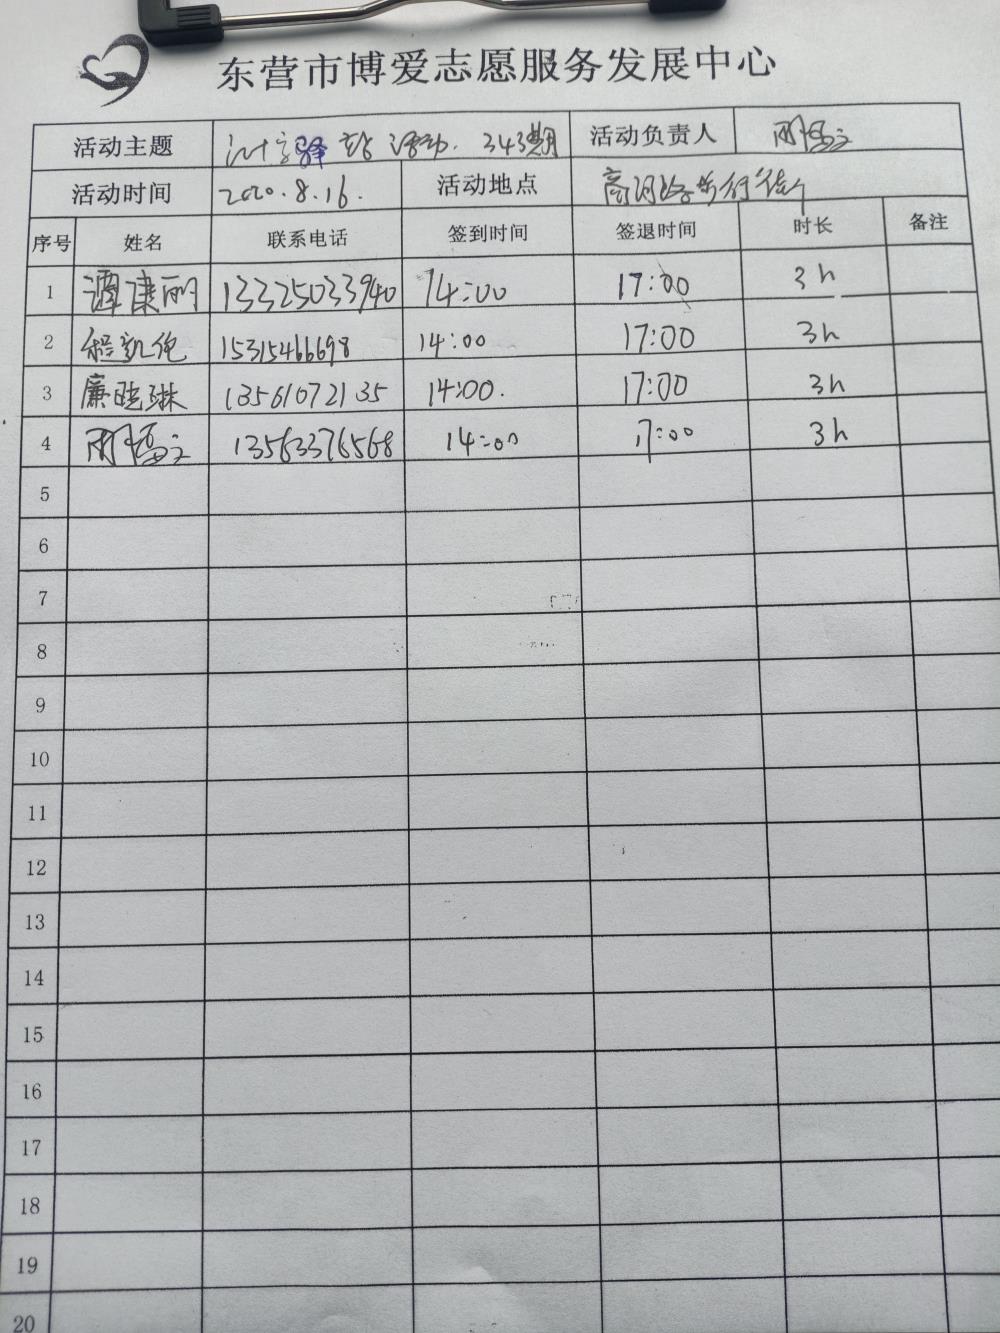 东营市博爱志愿服务发展中心
活动主题 驿站活动. 343期 活动负责人
活动时间 2020.8.16. 活动地点 商河路步行街
序号 姓名 联系电话 签到时间 签退时间 时长 备注
1 谭康丽 13325033940 14:00 17:00 3h
2 程凯伦 15315466698 14:00 17:00 3h
3 廉晓琳 13561072135 14:00. 17:00 3h
4 13563376568 14:00 17:00 3h
5
6
7
8
9
10
11
12
13
14
15
16
17
18
19
20